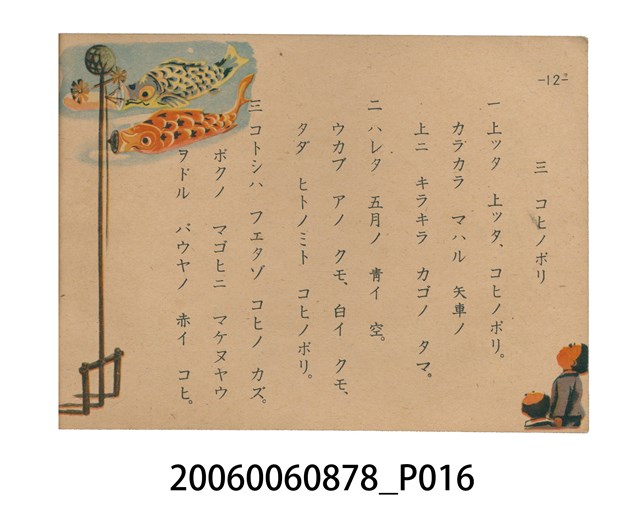 -12-
三 コヒノボリ
一 上ツタ 上ツタ、コヒノボリ。
カラカラ マハル 矢車ノ
上ニ キラキラ カゴノ タマ。
二 ハレタ 五月ノ 青イ 空。
ウカブ アノ クモ、白イ クモ、
タダ ヒトノミト コヒノボリ。
三 コトシハ フエタゾ コヒノ カズ。
ボクノ マゴヒニ マケヌヤウ
ヲドル バウヤノ 赤イ コヒ。
20060060878_P016